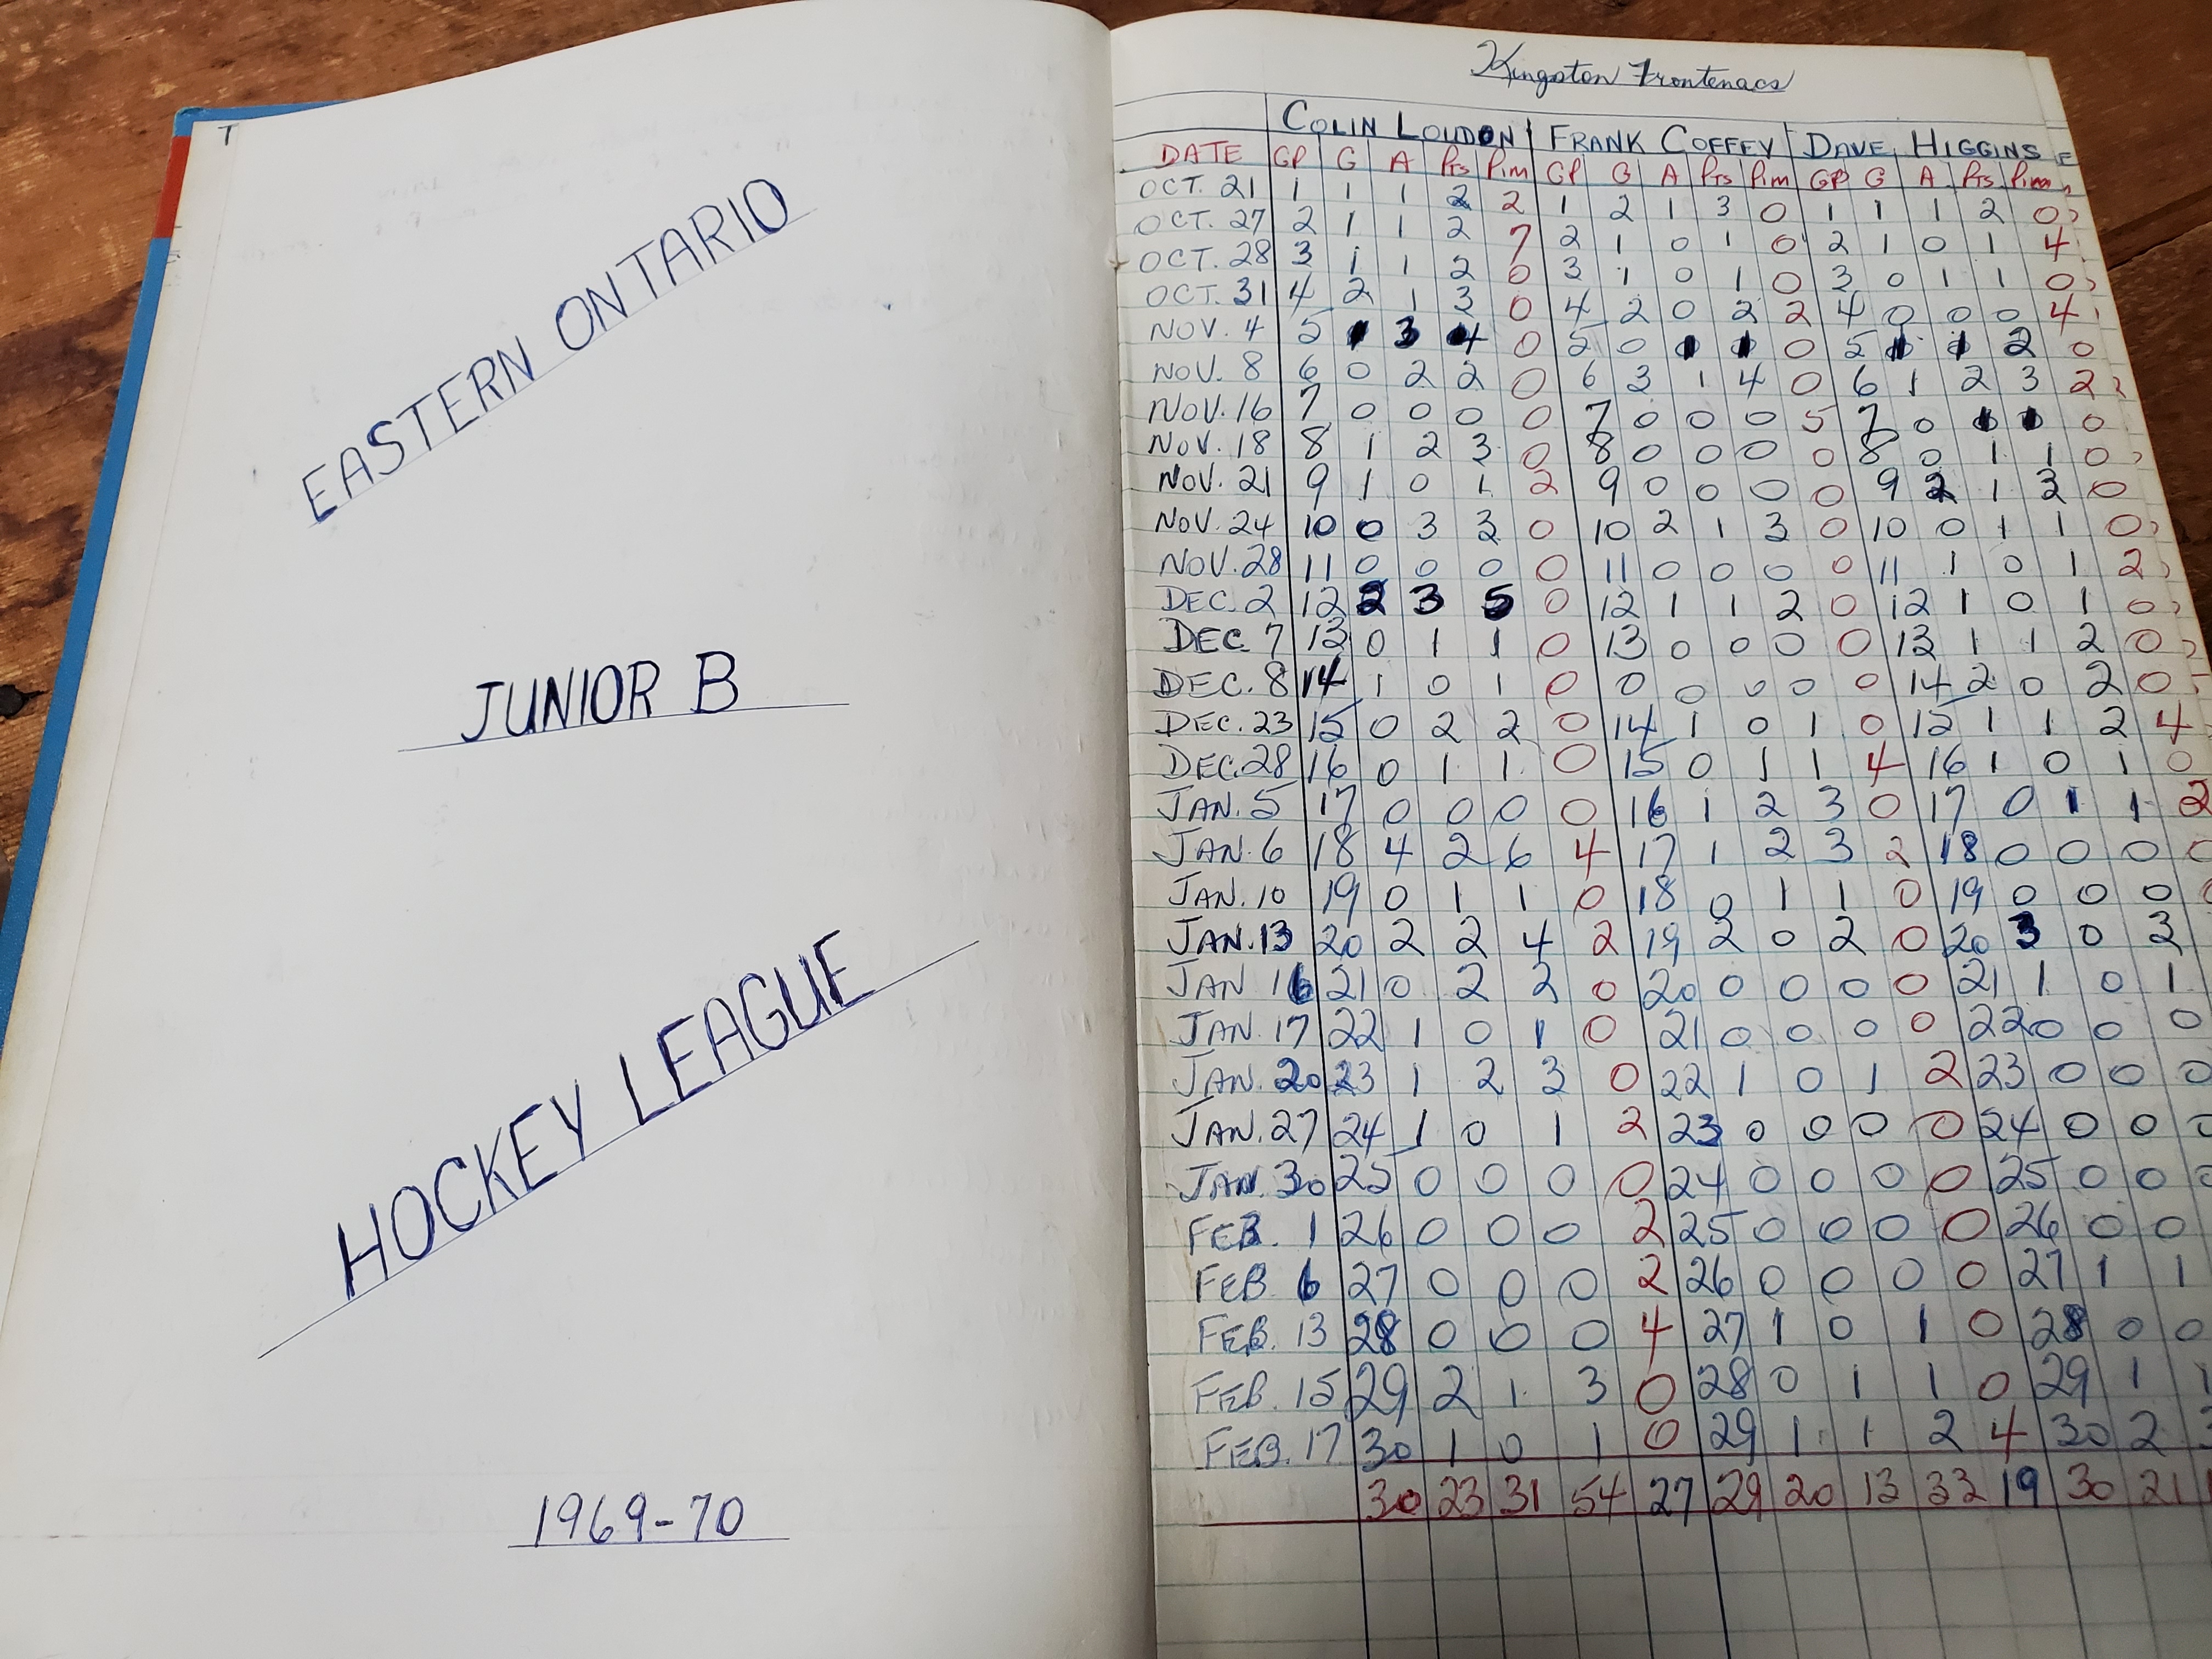 T
EASTERN ONTARIO
JUNIOR B
HOCKEY LEAGUE
1969-70
Kingston Frontenacs
COLIN LOUDON FRANK COFFEY DAVE HIGGINS
DATE GP G A Pts Pim GP G A Pts Pim GP G A Pts Pim
OCT. 21 1 1 1 2 2 1 2 1 3 0 1 1 1 2 0
OCT. 27 2 1 1 2 7 2 1 0 1 0 2 1 0 1 4
OCT. 28 3 1 1 2 0 3 1 0 1 0 3 0 1 1 0
OCT. 31 4 2 1 3 0 4 2 0 2 2 4 0 0 0 4
NOV. 4 5 1 3 4 0 5 0 1 1 0 5 1 1 2 0
NOV. 8 6 0 2 2 0 6 3 1 4 0 6 1 2 3 2
NOV. 16 7 0 0 0 0 7 0 0 0 5 7 0 0
NOV. 18 8 1 2 3 0 8 0 0 0 0 8 0 1 1 0
NOV. 21 9 1 0 1 2 9 0 0 0 0 9 2 1 3 0
NOV. 24 10 0 3 3 0 10 2 1 3 0 10 0 1 1 0
NOV. 28 11 0 0 0 0 11 0 0 0 0 11 1 0 1 2
DEC. 2 12 2 3 5 0 12 1 1 2 0 12 1 0 1 0
DEC. 7 13 0 1 1 0 13 0 0 0 0 13 1 1 2 0
DEC. 8 14 1 0 1 0 0 0 0 0 0 14 2 0 2 0
DEC. 23 15 0 2 2 0 14 1 0 1 0 15 1 1 2 4
DEC. 28 16 0 1 1 0 15 0 1 1 4 16 1 0 1 0
JAN. 5 17 0 0 0 0 16 1 2 3 0 17 0 1 1 2
JAN. 6 18 4 2 6 4 17 1 2 3 2 18 0 0 0 0
JAN. 10 19 0 1 1 0 18 0 1 1 0 19 0 0 0
JAN. 13 20 2 2 4 2 19 2 0 2 0 20 3 0 3
JAN 16 21 0 2 2 0 20 0 0 0 0 21 1 0 1
JAN. 17 22 1 0 1 0 21 0 0 0 0 22 0 0 0
JAN. 20 23 1 2 3 0 22 1 0 1 2 23 0 0 0
JAN. 27 24 1 0 1 2 23 0 0 0 0 24 0 0 0
JAN. 30 25 0 0 0 0 24 0 0 0 0 25 0 0 0
FEB. 1 26 0 0 0 2 25 0 0 0 0 26 0 0
FEB 6 27 0 0 0 2 26 0 0 0 0 27 1 1
FEB. 13 28 0 0 0 4 27 1 0 1 0 28 0 0
FEB. 15 29 2 1 3 0 28 0 1 1 0 29 1 1
FEB. 17 30 1 0 1 0 29 1 1 2 4 30 2
30 23 31 54 27 29 20 13 33 19 30 21